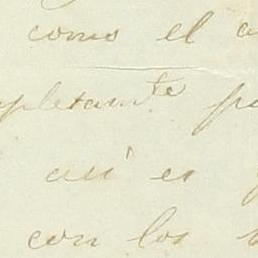 como el
pletam.te
así es
con los